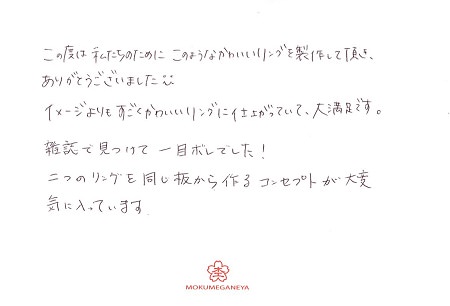 この度は 私たちのために このようなかわいいリングを製作して頂き、
ありがとうございました
イメージよりもすごくかわいいリングに仕上がっていて、大満足です。
雑誌で見つけて 一目ボレでした！
二つのリングを同じ板から作るコンセプトが大変
気に入っています.
MOKUMEGANEYA